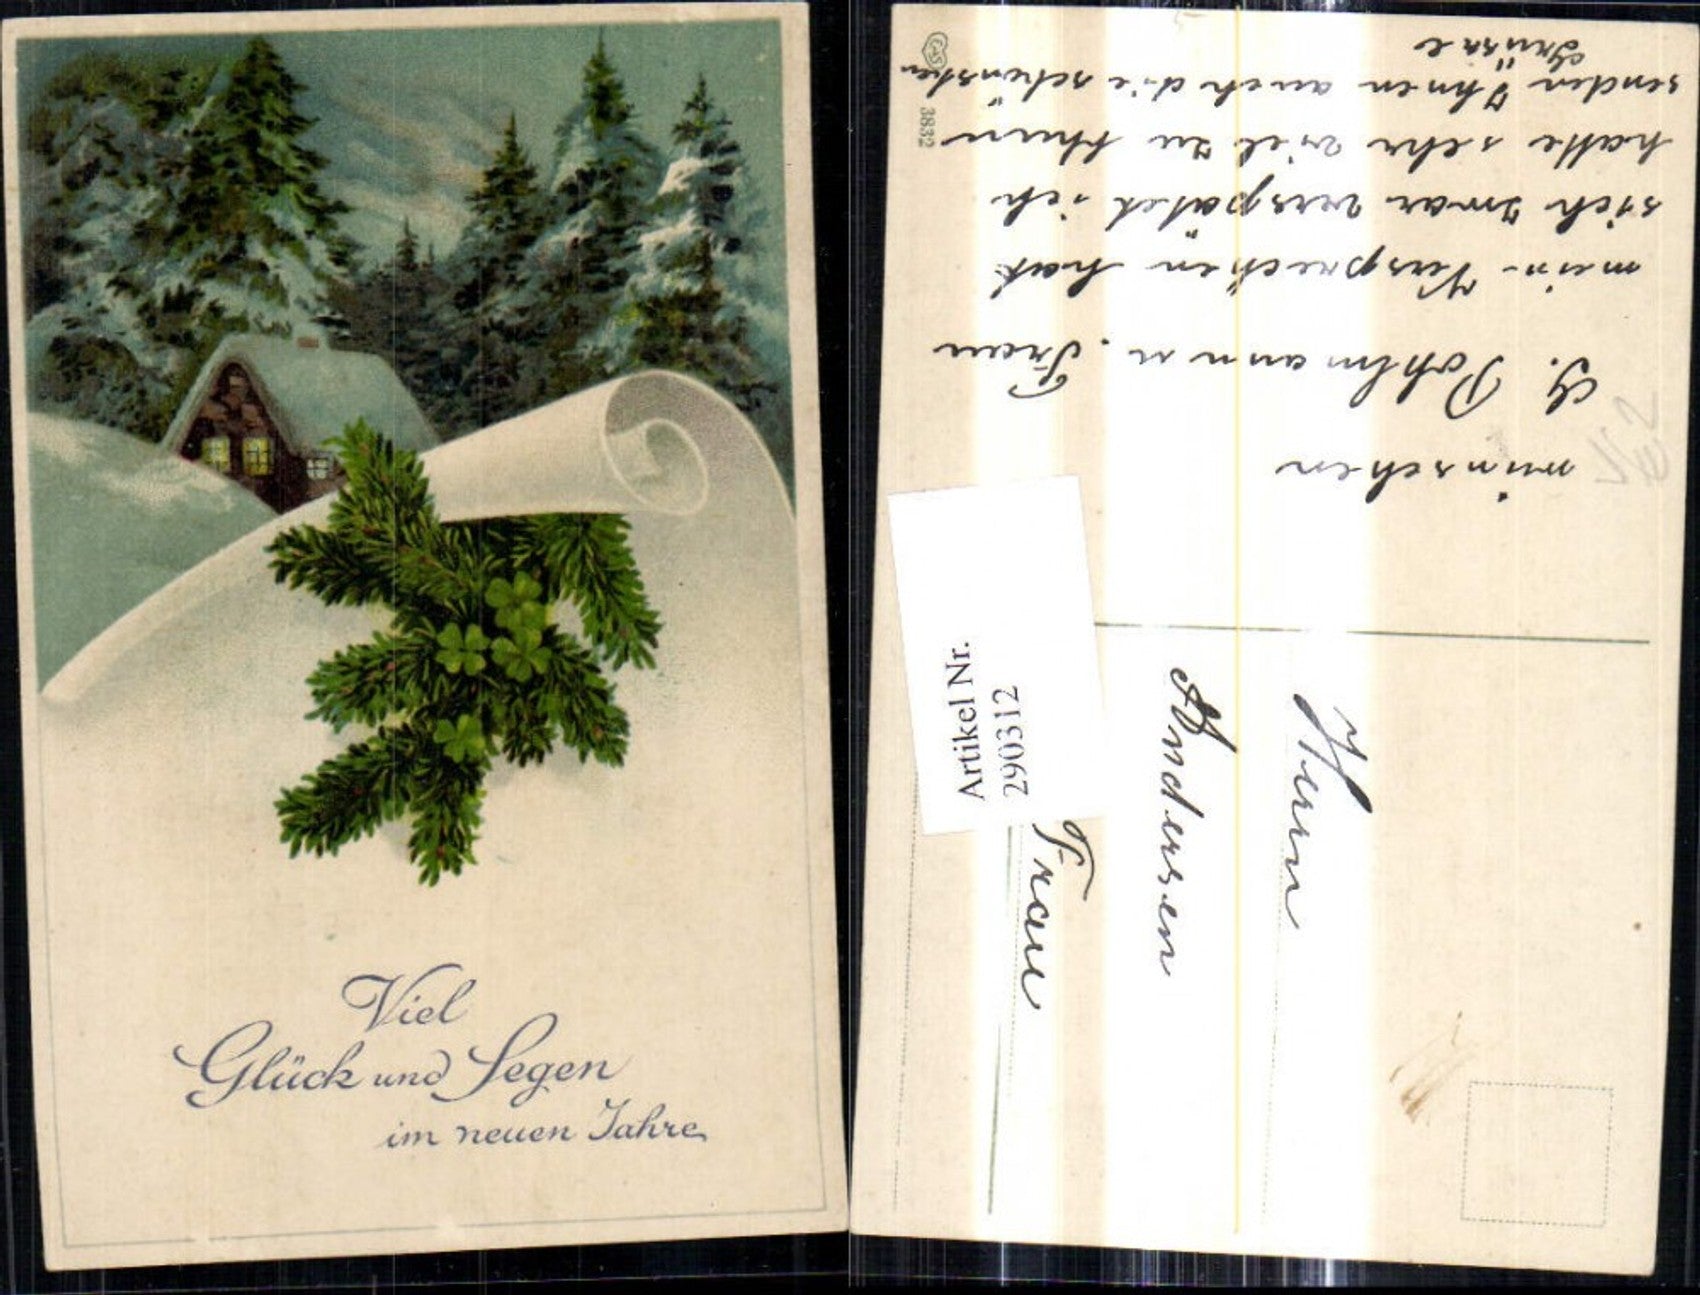 Viel
Glück und Segen
im neuen Jahre
wünschen
G. Pohlmann u. Frau
mein Versprechen hat
sich zwar verspätet ich
hatte sehr viel zu thun
senden Ihnen auch die schönsten
Grüsse
3832
Artikel Nr.
290312
Herrn
Andersen
Frau